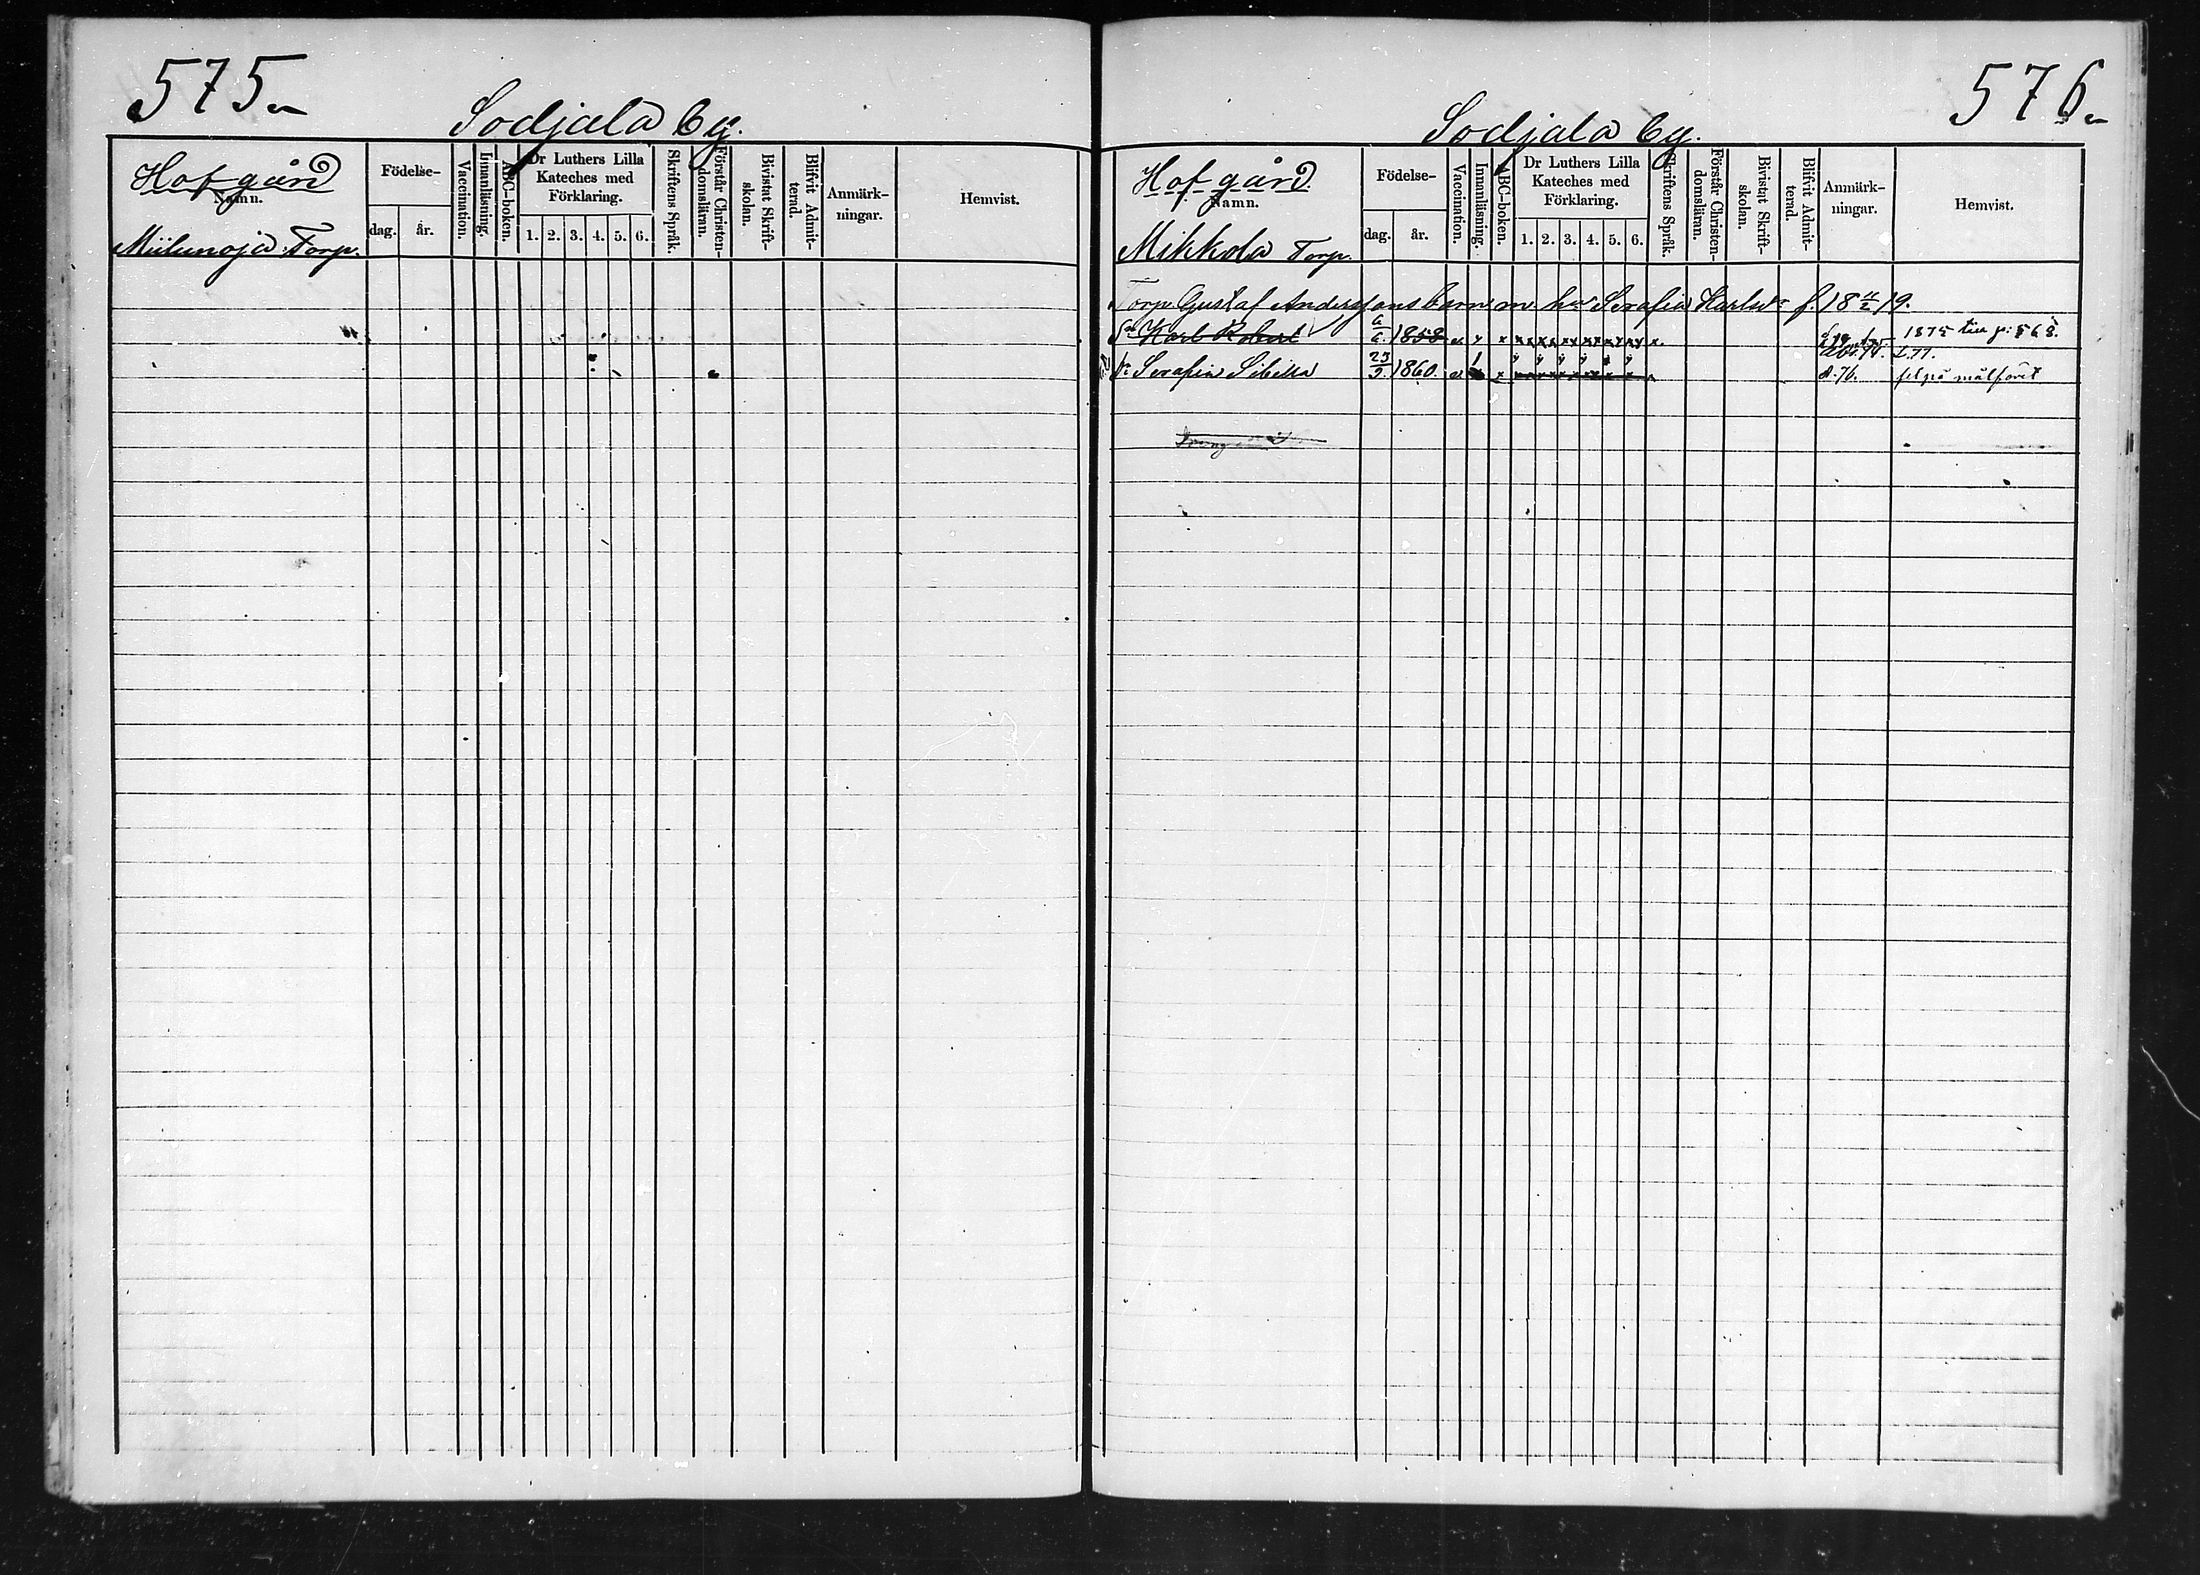 575
Sodjala by.
Hofgård
Namn.
Födelse-
dag. år.
Vaccination.
Innanläsning.
ABC-boken.
Dr Luthers Lilla
Kateches med
Förklaring.
1. 2. 3. 4. 5. 6.
Skriftens Språk.
Förstår Christen-
domsläran.
Bivistat Skrift-
skolan.
Blifvit Admit-
terad.
Anmärk-
ningar.
Hemvist.
Miilunoja Torp.
576
Sodjala by.
Hofgård.
Namn.
Födelse-
dag. år.
Vaccination.
Innanläsning.
ABC-boken.
Dr Luthers Lilla
Kateches med
Förklaring.
1. 2. 3. 4. 5. 6.
Skriftens Språk.
Förstår Christen-
domsläran.
Bivistat Skrift-
skolan.
Blifvit Admit-
terad.
Anmärk-
ningar.
Hemvist.
Mikkola Torp.
Torp. Gustaf Anderssons barn m. hu Serafia Karlsdr f. 18 11/2 19.
Sn Karl Robert 6/6 1858 v x x x x x x x x x 1875 till p: 568.
L.77.
dr Serafia Sibella 23/9 1860. v x x x x x x x x A.76. fel på målföret